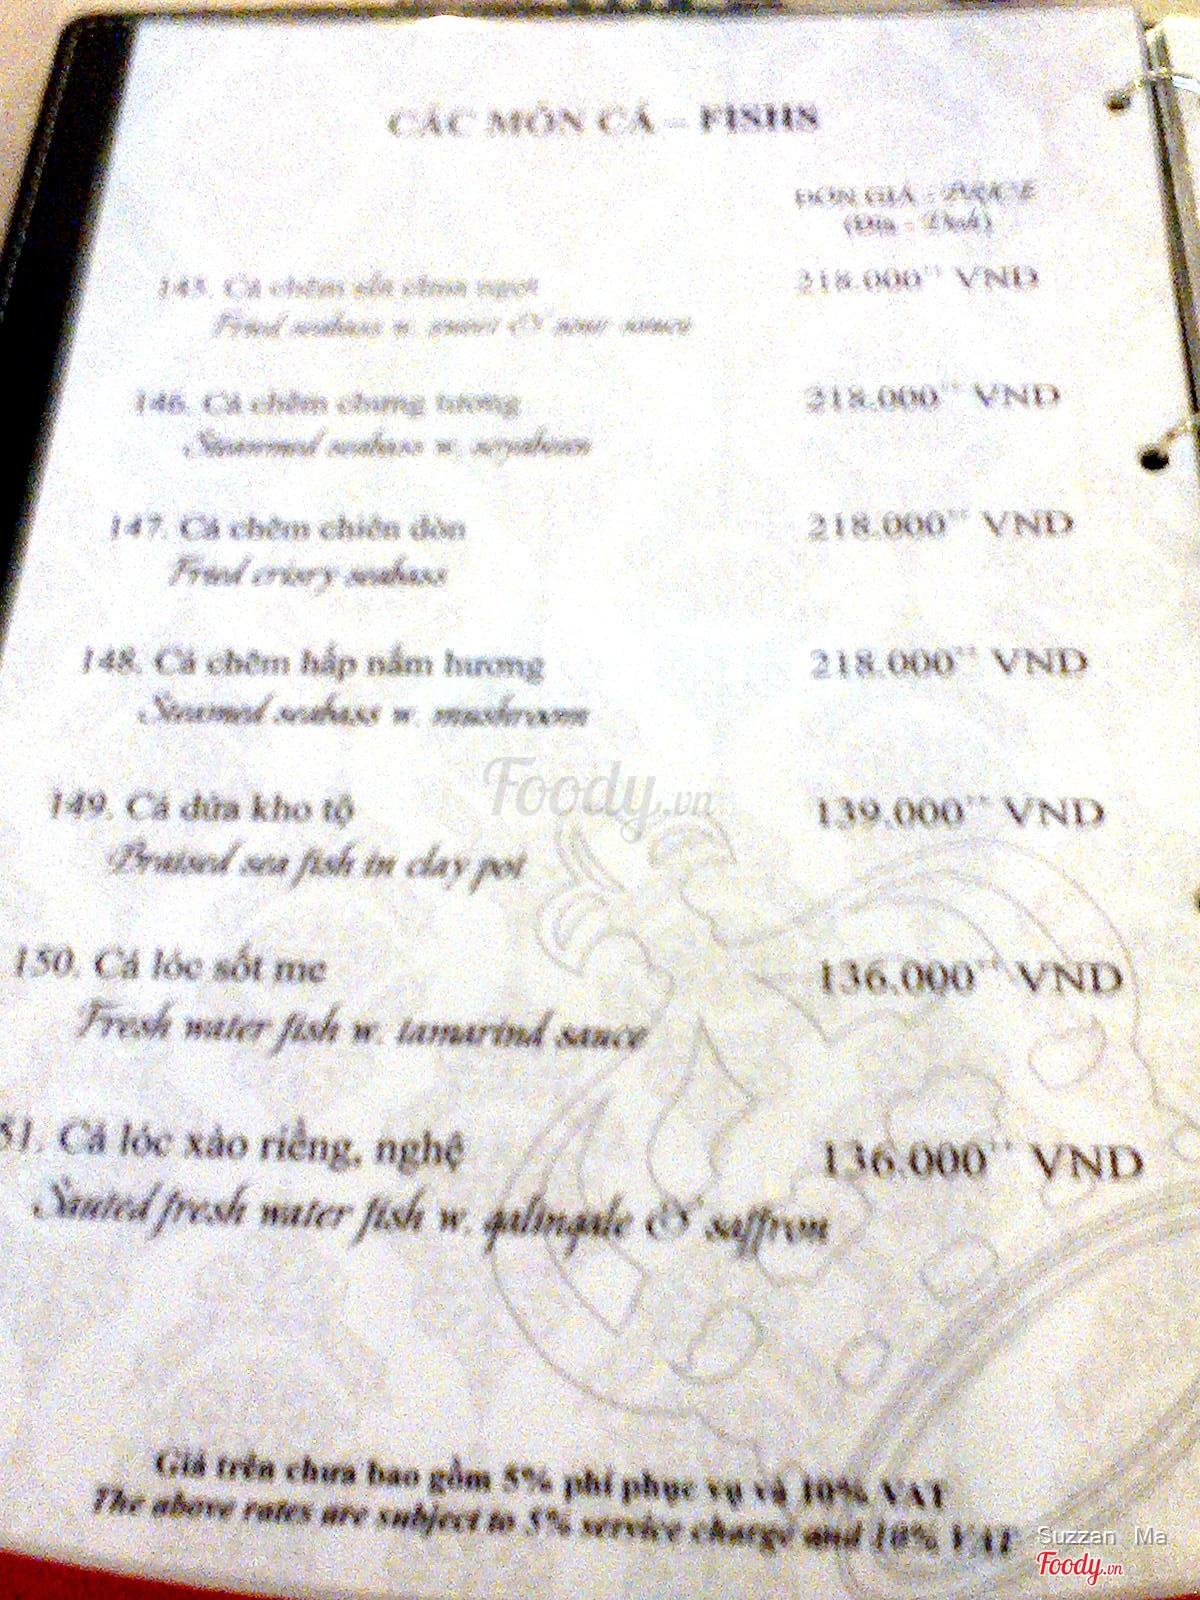 CÁC MÓN CÁ – FISHS
ĐƠN GIÁ - PRICE
(Đĩa - Dish)
145. Cá chẽm sốt chua ngọt 218.000++ VND
Fried seabass w. sweet & sour sauce
146. Cá chẽm chưng tương 218.000++ VND
Steamed seabass w. soyabean
147. Cá chẽm chiên dòn 218.000++ VND
Fried crispy seabass
148. Cá chẽm hấp nấm hương 218.000++ VND
Steamed seabass w. mushroom
149. Cá dứa kho tộ 139.000++ VND
Braised sea fish in clay pot
150. Cá lóc sốt me 136.000++ VND
Fresh water fish w. tamarind sauce
51. Cá lóc xào riềng, nghệ 136.000++ VND
Sauted fresh water fish w. galingale & saffron
Giá trên chưa bao gồm 5% phí phục vụ và 10% VAT
The above rates are subject to 5% service charge and 10% VAT
Foody.vn
Suzzan Ma
Foody.vn